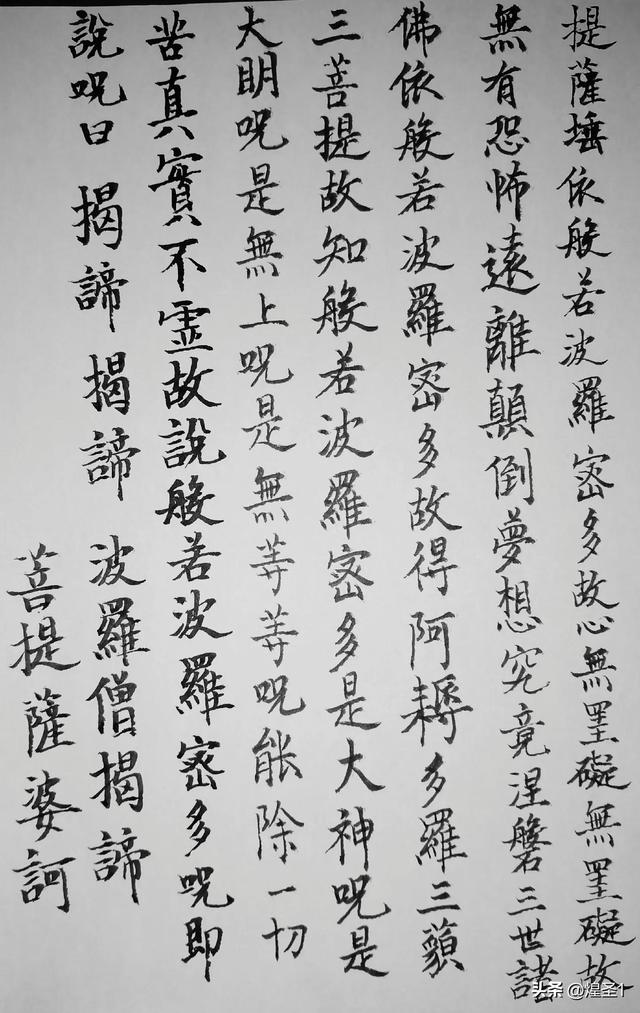 提薩埵依般若波羅密多故心無罣礙無罣礙故
無有恐怖遠離顛倒夢想究竟涅磐三世諸
佛依般若波羅密多故得阿耨多羅三藐
三菩提故知般若波羅密多是大神呪是
大明呪是無上呪是無等等呪能除一切
苦真實不虛故說般若波羅密多呪即
說呪曰 揭諦 揭諦 波羅僧揭諦
菩提薩婆訶
头条 @煌圣1